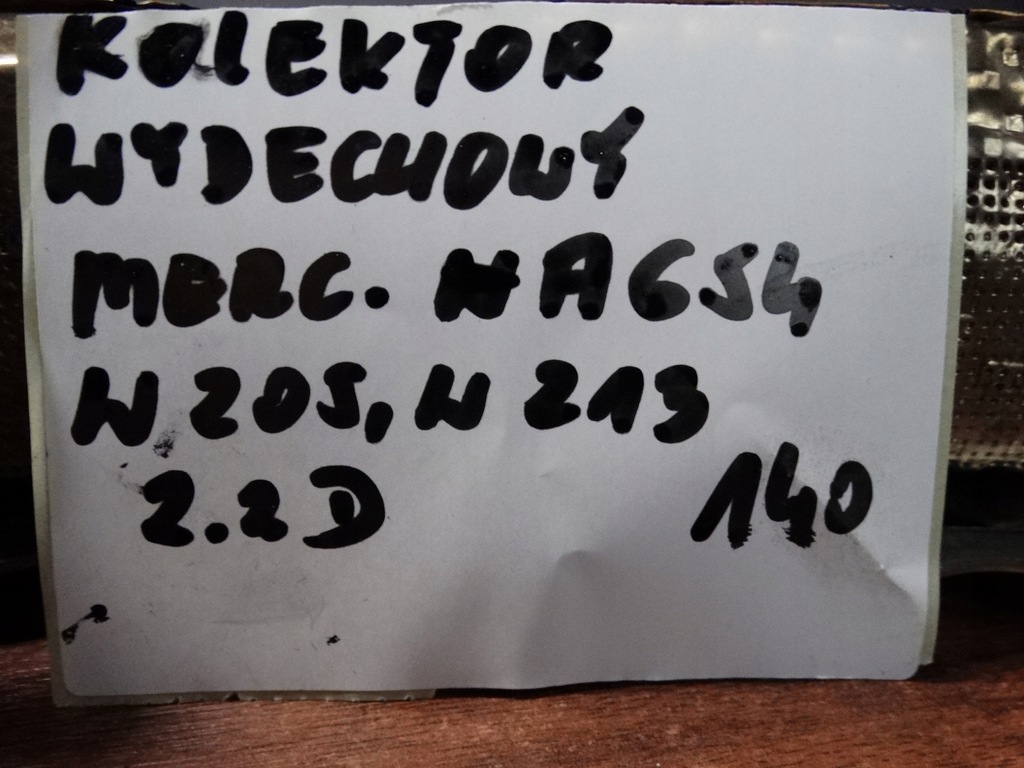 KOLEKTOR
WYDECHOWY
MERC. A654
W205, W213
2.2D 140